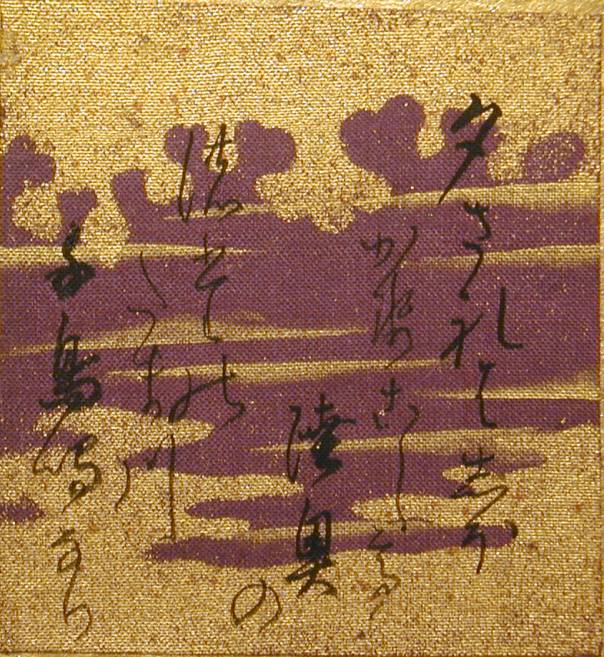 夕されは志ほ
か勢こして
陸奥の
濃たの
たま川
千鳥鳴なり